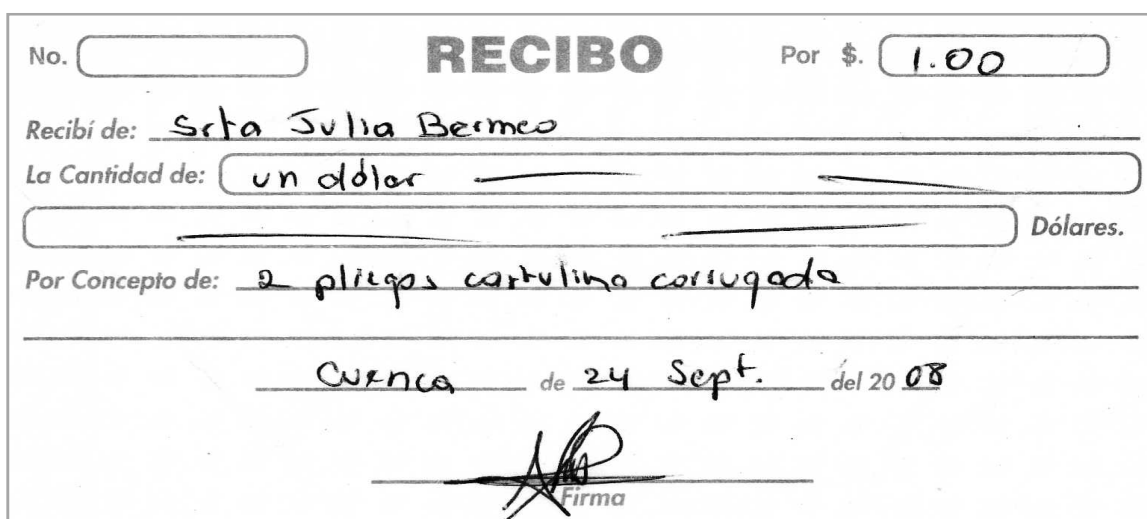 No. RECIBO Por $. 1.00
Recibí de: Srta Julia Bermeo
La Cantidad de: un dólar
Dólares.
Por Concepto de: 2 pliegos cartulina corrugada
Cuenca de 24 Sept. del 20 08
Firma